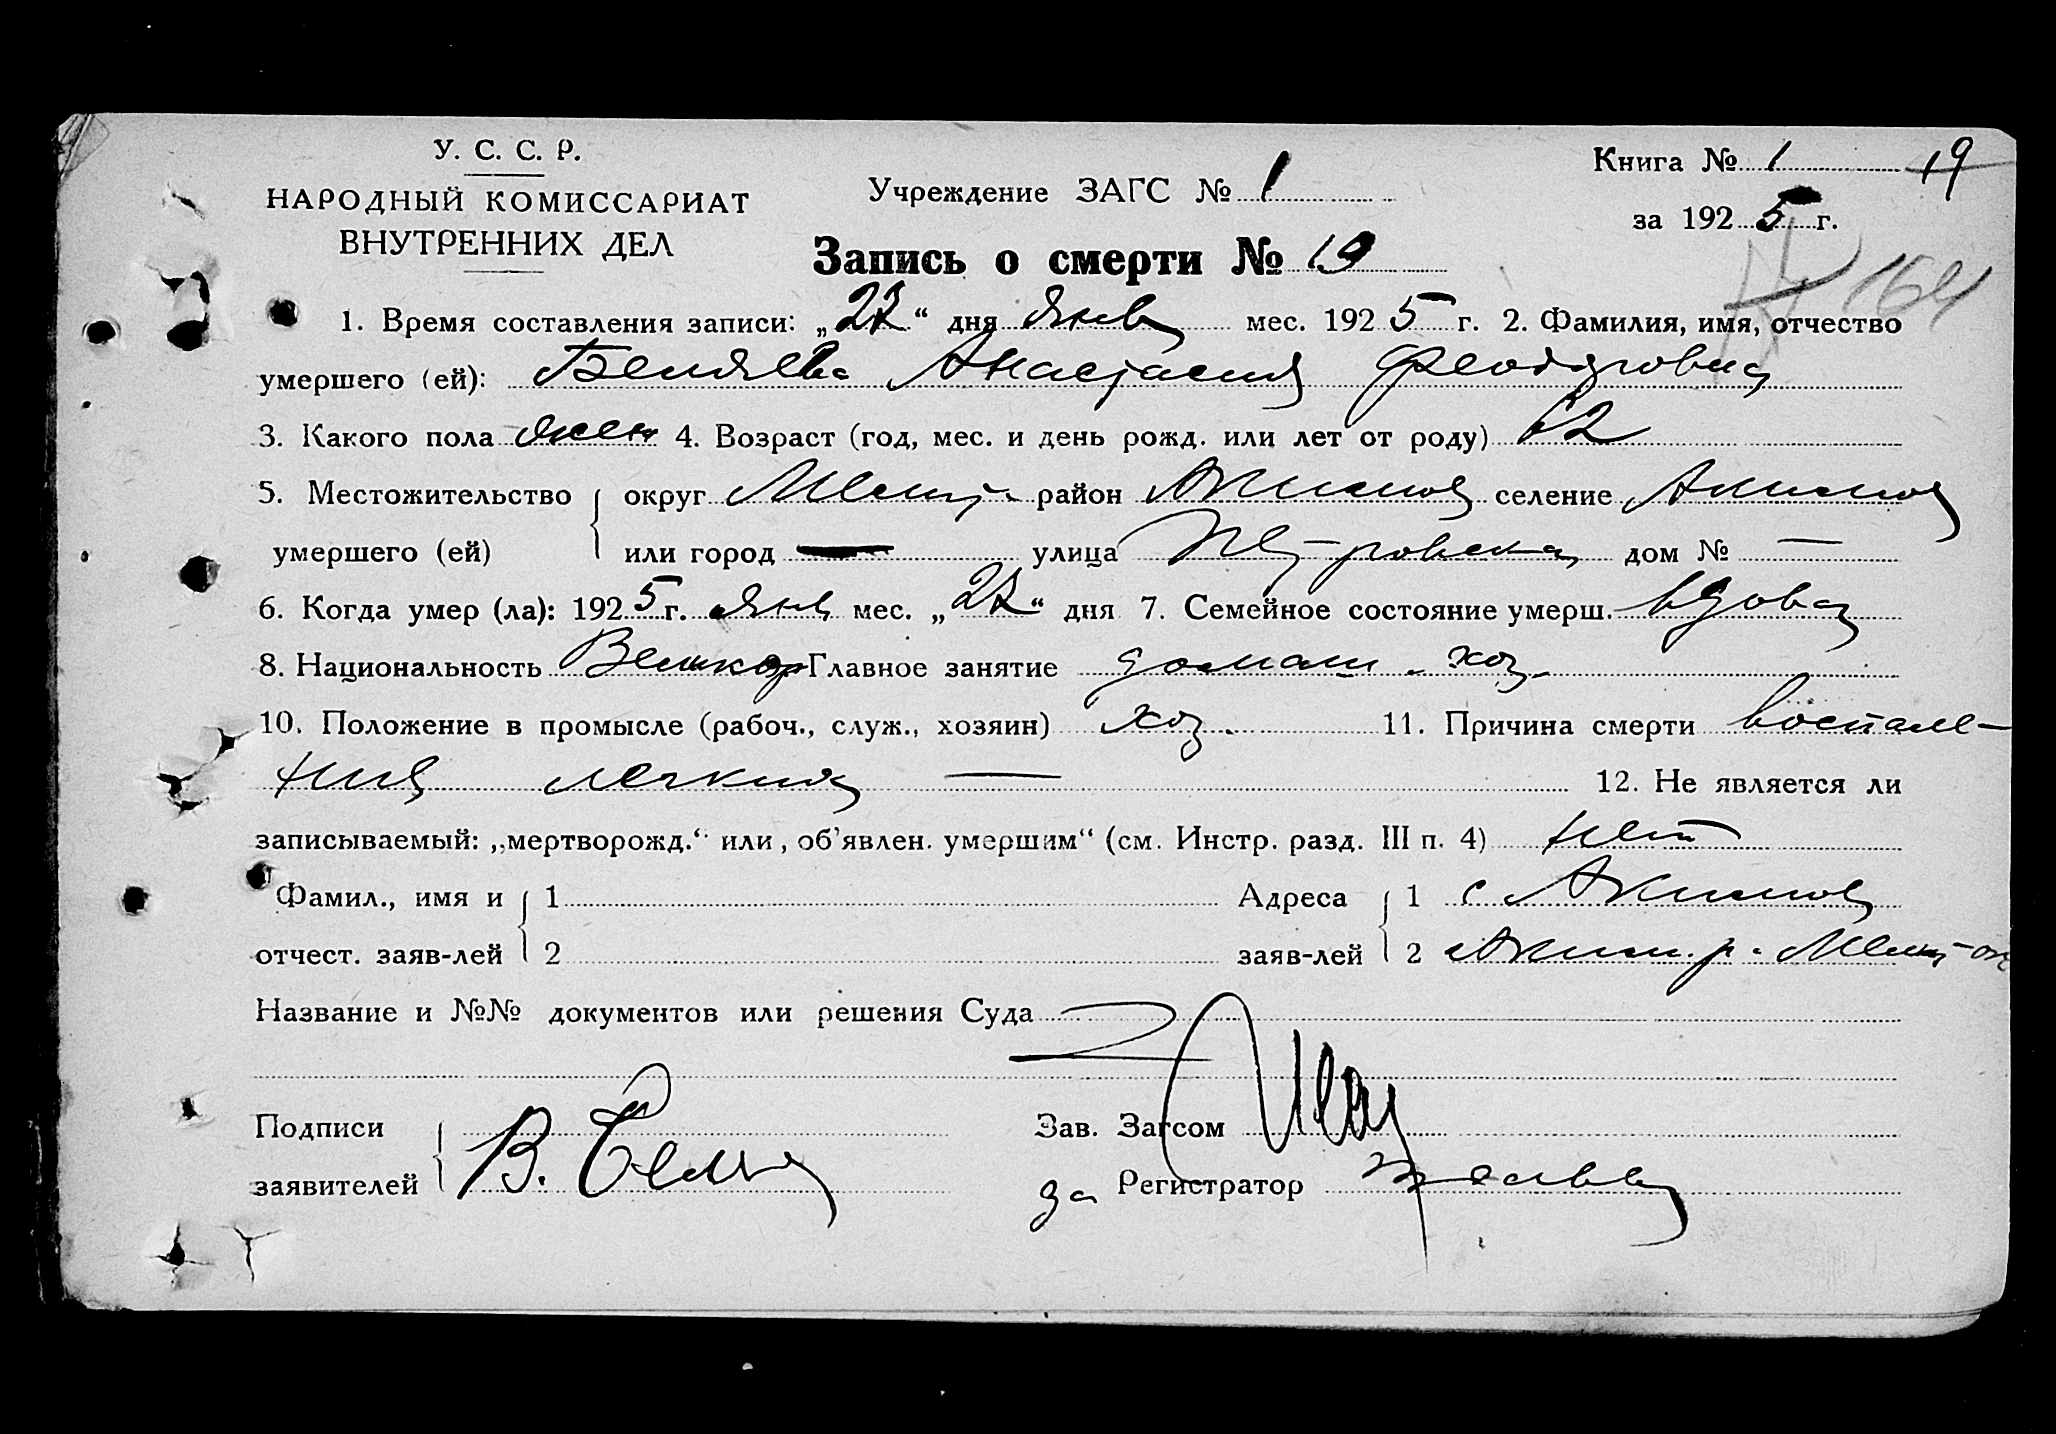 У. С. С. Р.
НАРОДНЫЙ КОМИССАРИАТ
ВНУТРЕННИХ ДЕЛ
Учреждение ЗАГС № 1
Книга № 1 19
за 1925 г.
Запись о смерти № 19
164
1. Время составления записи: „22“ дня янв мес. 1925 г. 2. Фамилия, имя, отчество
умершего (ей): Беляева Анастасия Феодоровна
3. Какого пола жен 4. Возраст (год, мес. и день рожд. или лет от роду) 62
5. Местожительство округ Мелит. район Акимов селение Акимов
умершего (ей) или город — улица Петровская дом № —
6. Когда умер (ла): 1925 г. янв мес. „22“ дня 7. Семейное состояние умерш. вдова
8. Национальность Великор Главное занятие домаш. хоз.
10. Положение в промысле (рабоч., служ., хозяин) хоз. 11. Причина смерти воспале-
ния легких — 12. Не является ли
записываемый: „мертворожд.“ или, об'явлен. умершим“ (см. Инстр. разд. III п. 4) нет
Фамил., имя и 1 Адреса 1 с Акимов
отчест. заяв-лей 2 заяв-лей 2 Аким. р. Мелит ок
Название и №№ документов или решения Суда
Подписи Зав. Загсом
заявителей В. за Регистратор